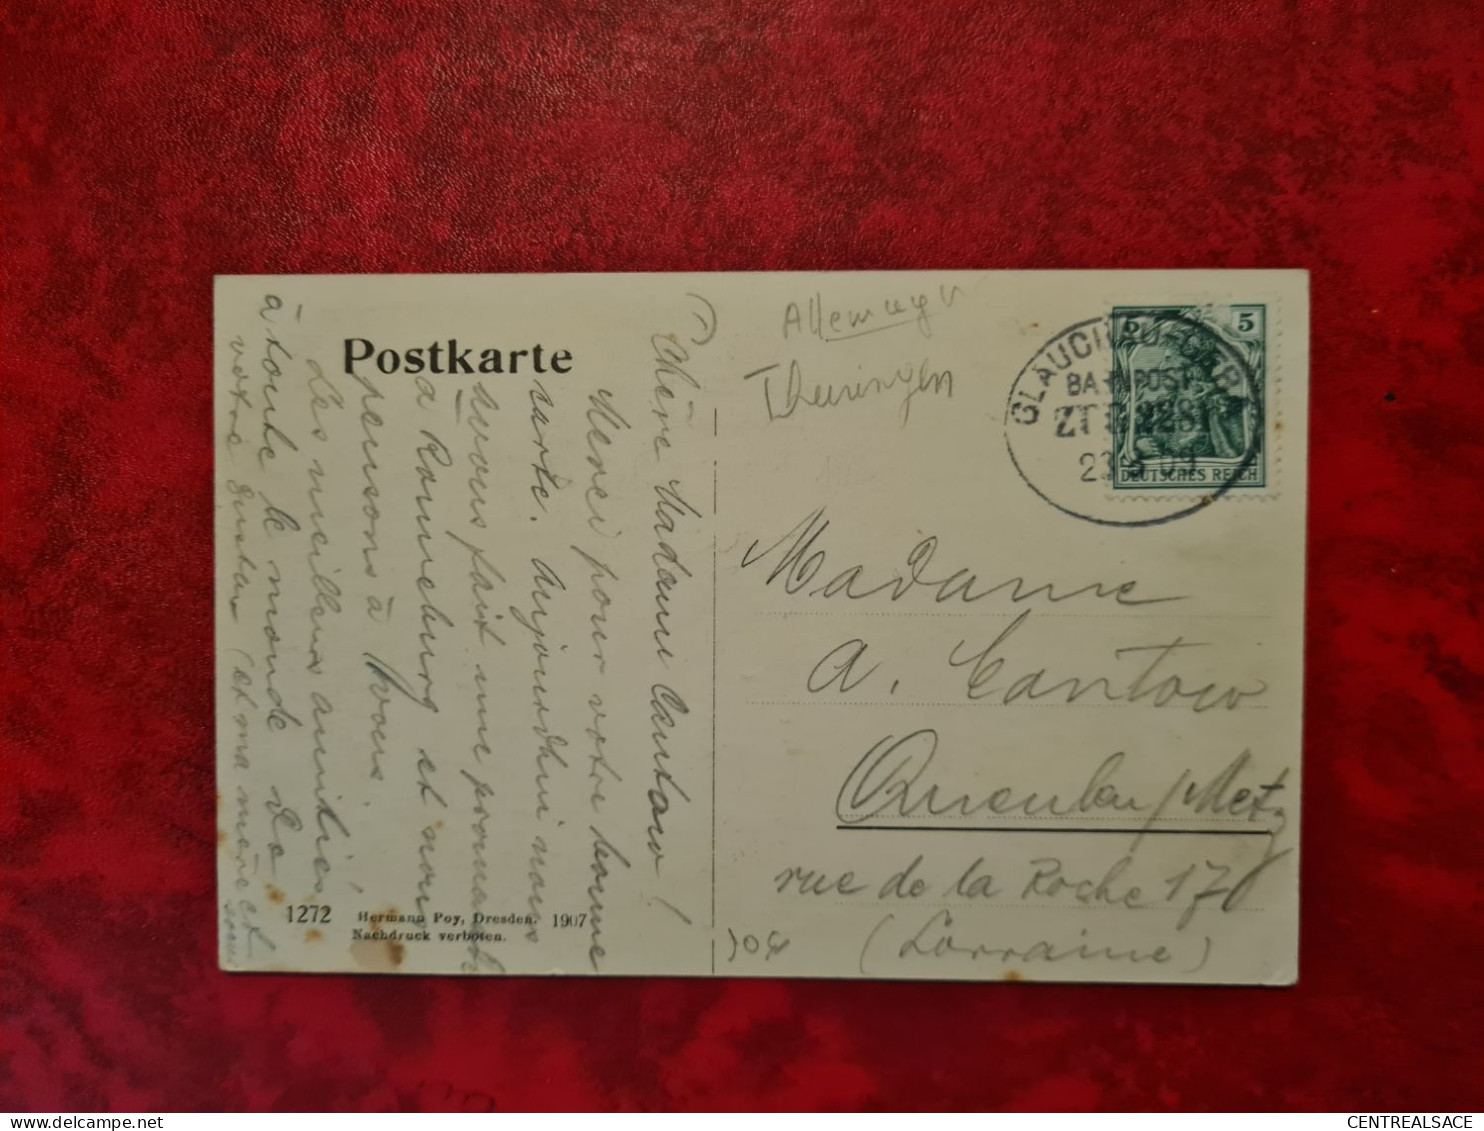 Postkarte
Chère Madame Cantow!
Merci pour votre bonne
carte. Aujourd'hui nous
avons fait une promenade
à Ronneburg et nous
pensons à vous.
Les meilleurs amitiés
à toute le monde de
votre Gustav (et ma mère et
1272 Hermann Poy, Dresden. 1907
Nachdruck verboten.
Allemagn
Thuringen
GLAUCHAU-GERA
BAHNPOST
5
DEUTSCHES REICH
Madame
A. Cantow
Queuleu / Metz
rue de la Roche 170
(Lorraine)
CENTREALSACE